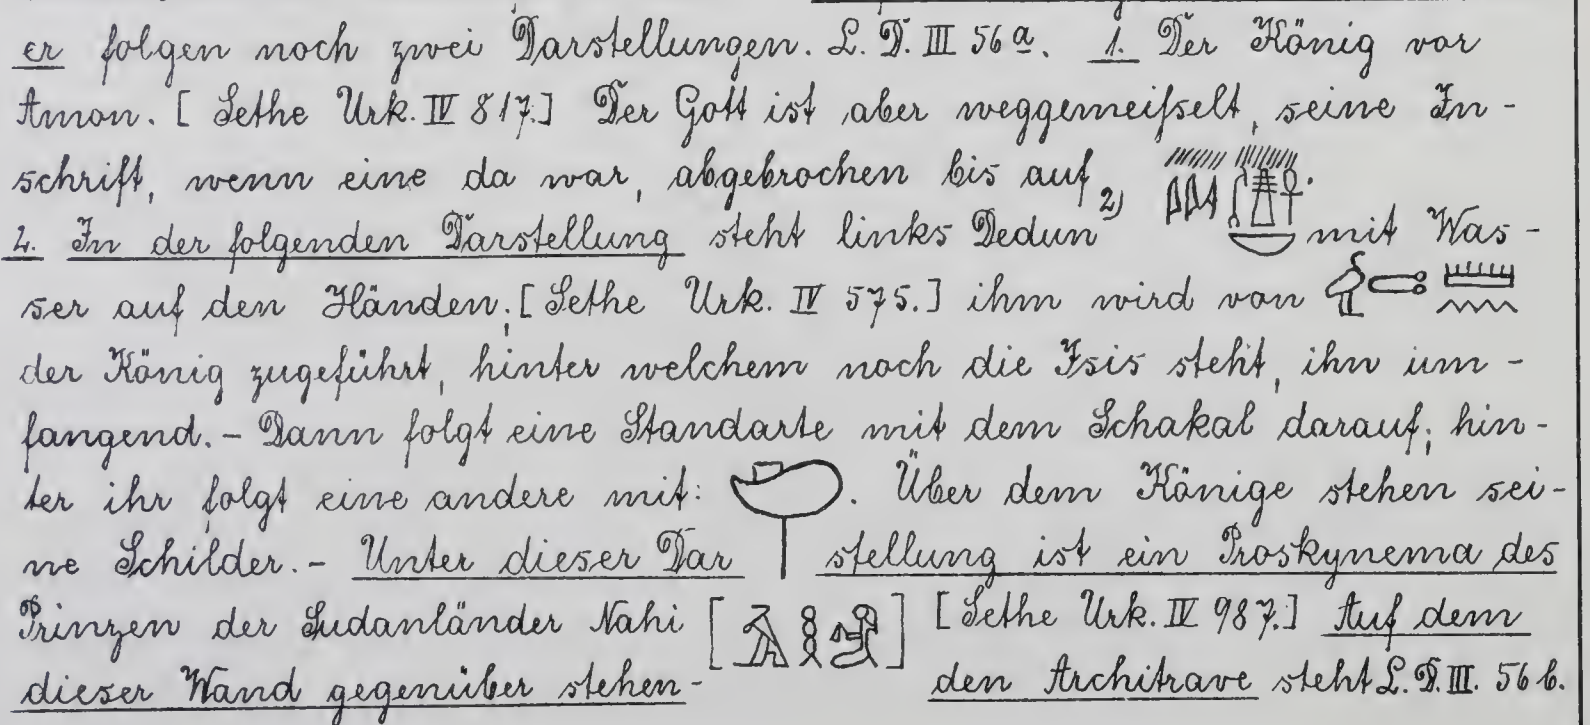 er folgen noch zwei Darstellungen. L. D. III 56 a. 1. Der König vor
Amon. [ Sethe Urk. IV 817.] Der Gott ist aber weggemeißelt, seine In-
schrift, wenn eine da war, abgebrochen bis auf
2. In der folgenden Darstellung steht links Dedun 2) mit Was-
ser auf den Händen; [ Sethe Urk. IV 575.] ihm wird von
der König zugeführt, hinter welchem noch die Isis steht, ihn um-
fangend. – Dann folgt eine Standarte mit dem Schakal darauf; hin-
ter ihr folgt eine andere mit: . Über dem Könige stehen sei-
ne Schilder. – Unter dieser Darstellung ist ein Proskynema des
Prinzen der Sudanländer Nahi [ ] [ Sethe Urk. IV 987.] Auf dem
dieser Wand gegenüber stehen- den Architrave steht L. D. III. 56 b.